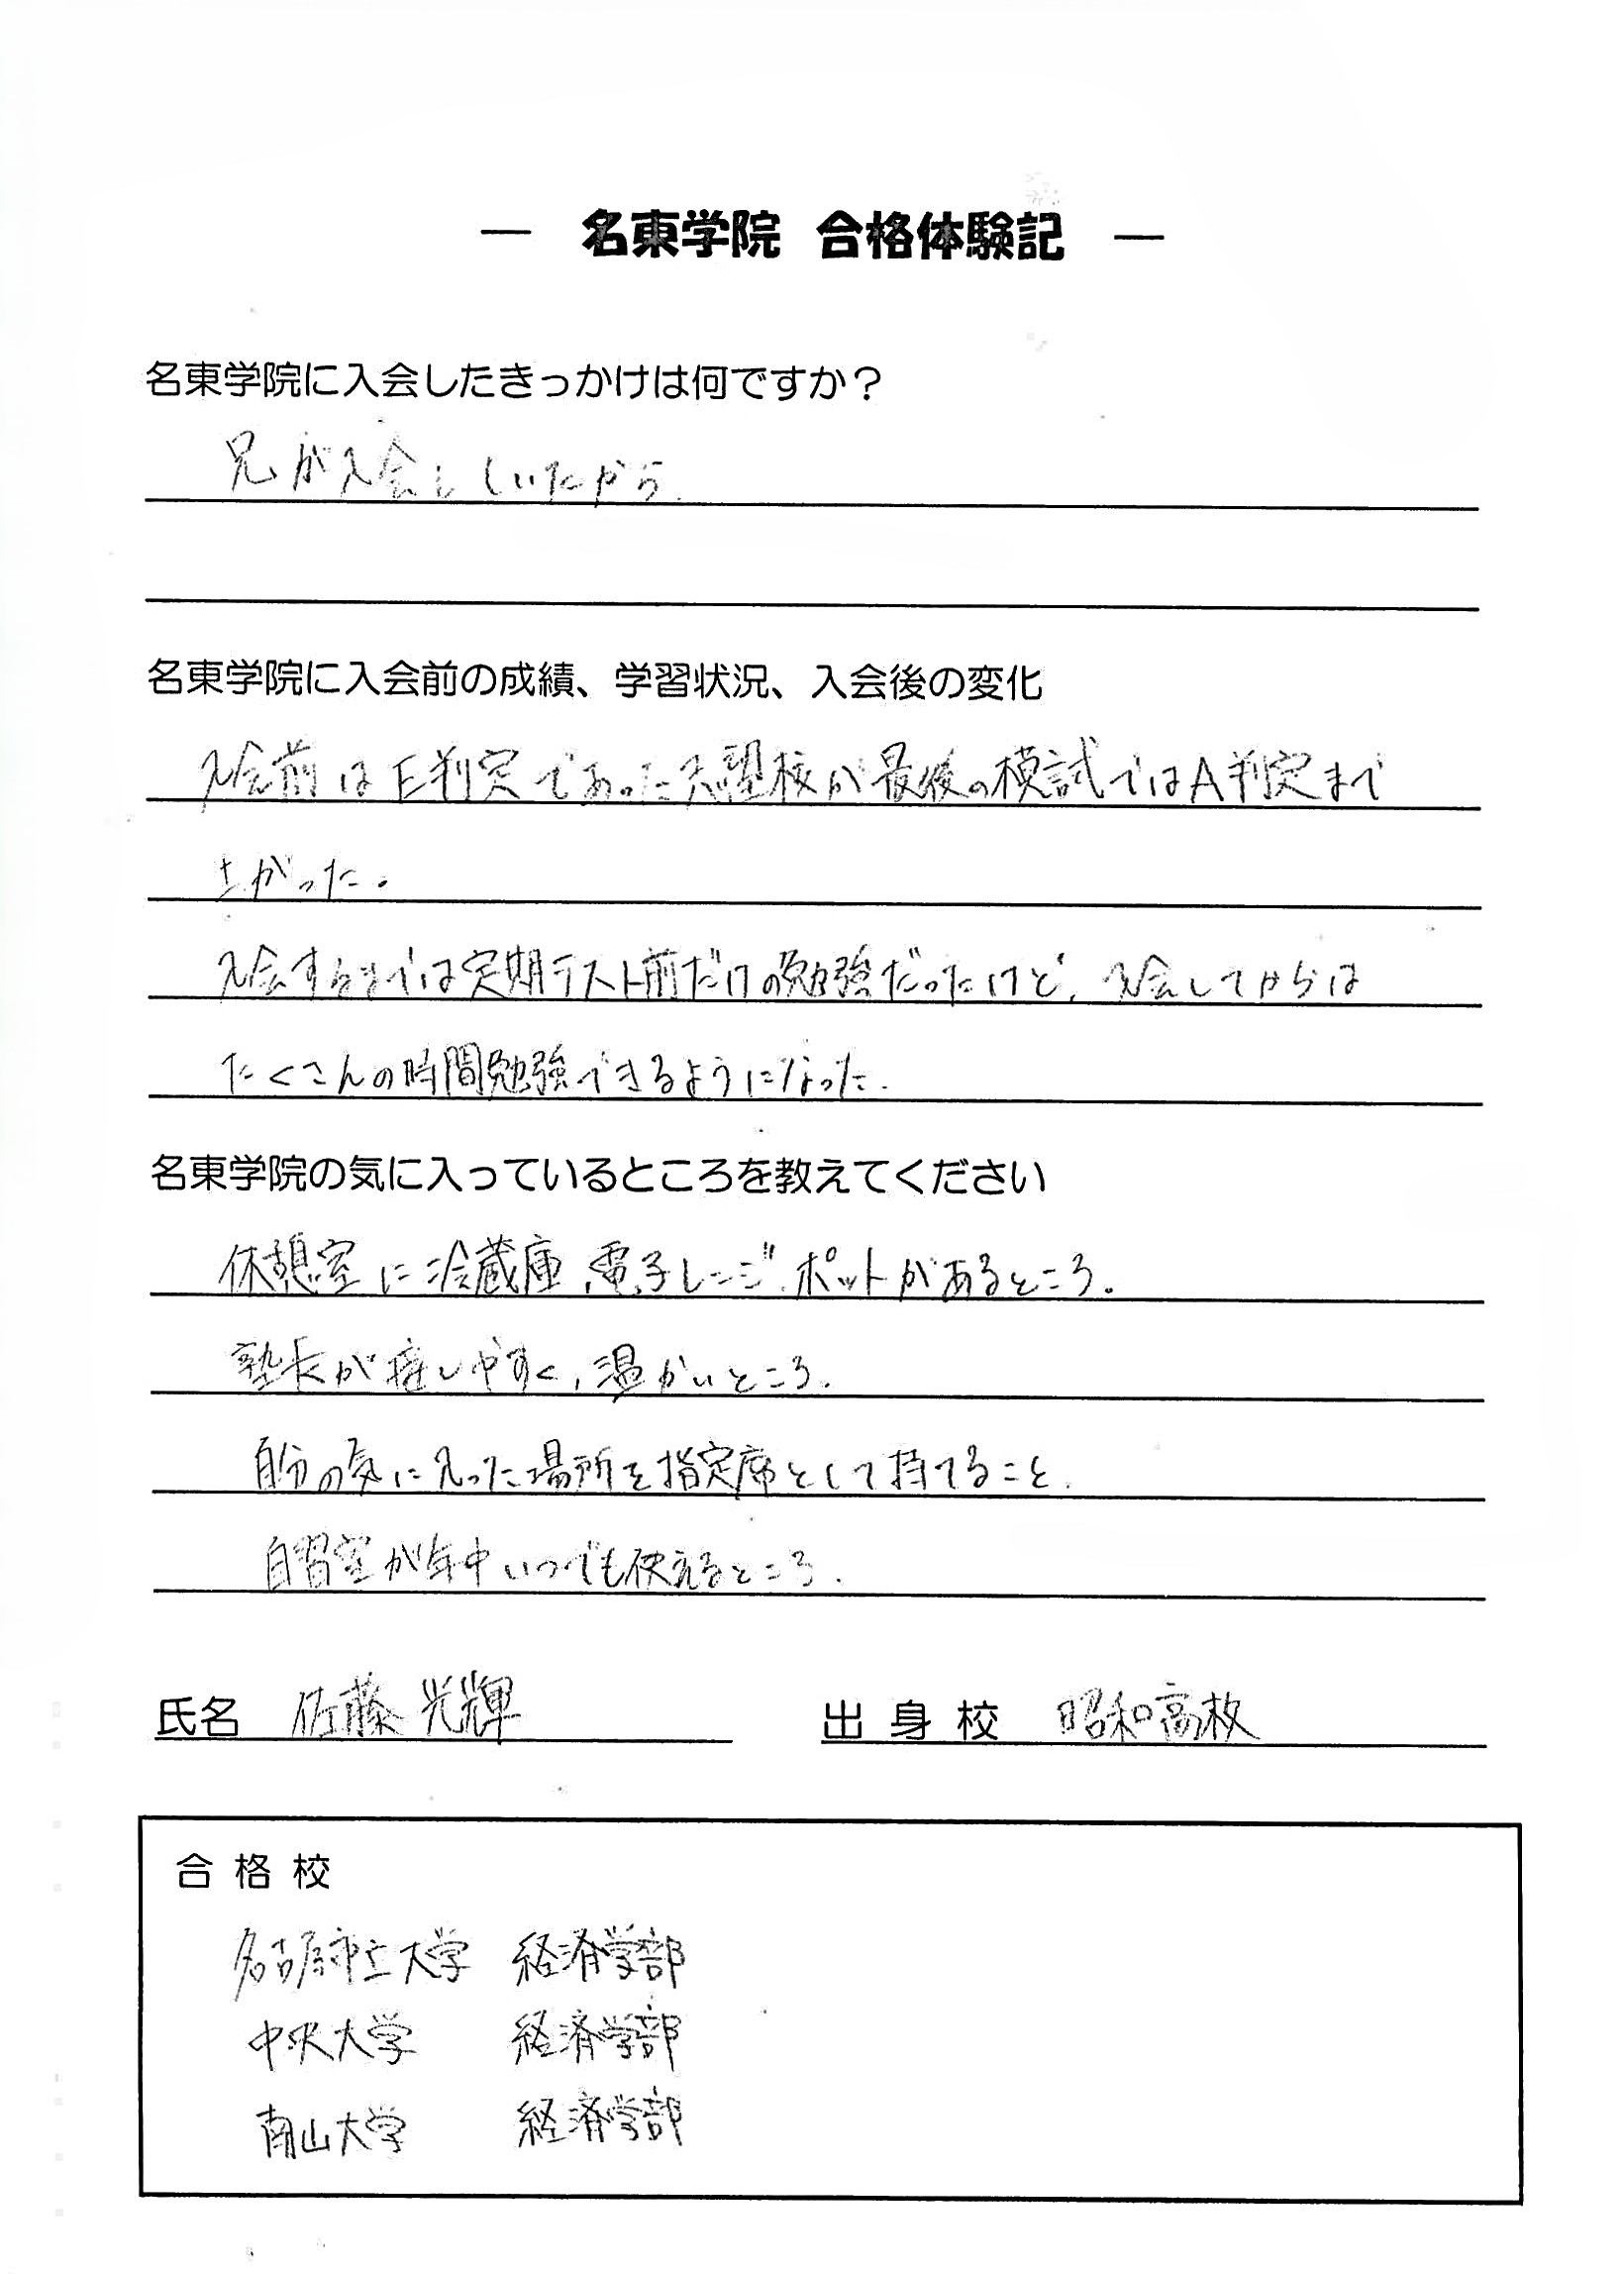 ― 名東学院 合格体験記 ―
名東学院に入会したきっかけは何ですか？
兄が入会していたから.
名東学院に入会前の成績、学習状況、入会後の変化
入会前はE判定であった志望校が最後の模試ではA判定まで
上がった。
入会するまでは定期テスト前だけの勉強だったけど、入会してからは
たくさんの時間勉強できるようになった.
名東学院の気に入っているところを教えてください
休憩室に冷蔵庫、電子レンジ、ポットがあるところ。
塾長が接しやすく、温かいところ.
自分の気に入った場所を指定席として持てること.
自習室が年中いつでも使えるところ.
氏名 佐藤光輝 出身校 昭和高校
合格校
名古屋市立大学 経済学部
中央大学 経済学部
南山大学 経済学部